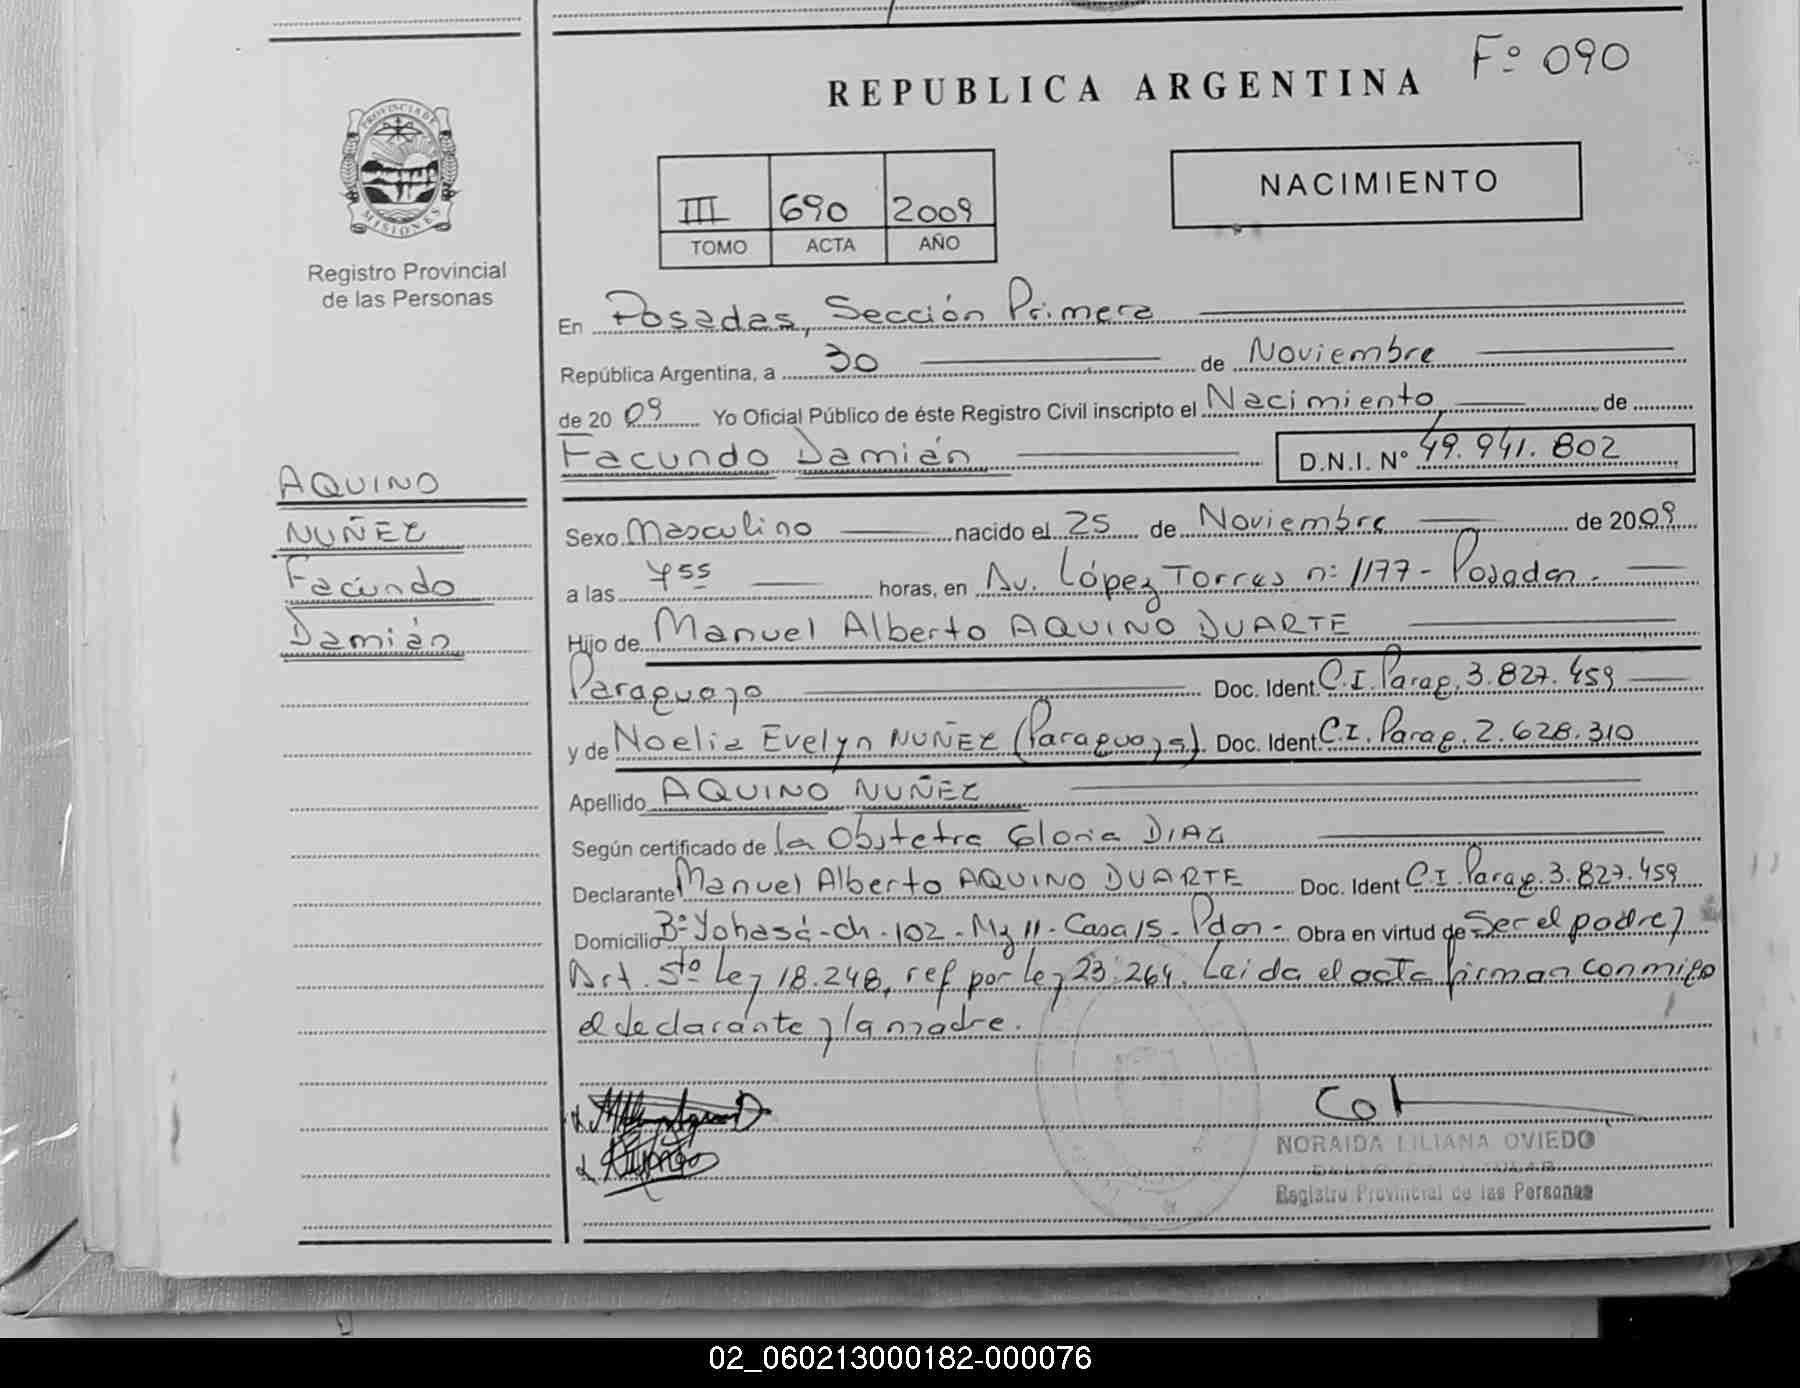 Fº 090
REPUBLICA ARGENTINA
PROVINCIA DE
MISIONES
Registro Provincial
de las Personas
III 690 2009
TOMO ACTA AÑO
NACIMIENTO
En Posadas, Sección Primera
República Argentina, a 30 de Noviembre
de 2009 Yo Oficial Público de éste Registro Civil inscripto el Nacimiento, de
Facundo Damián D.N.I. Nº 49.941.802
AQUINO
NUÑEZ
Facundo
Damián
Sexo Masculino nacido el 25 de Noviembre de 2009
a las 455 horas, en Av. López Torres nº 1177 - Posadas -
Hijo de Manuel Alberto AQUINO DUARTE
Paraguayo Doc. Ident. C.I. Parag. 3.827.459
y de Noelia Evelyn NUÑEZ (Paraguaya) Doc. Ident. C.I. Parag. 2.628.310
Apellido AQUINO NUÑEZ
Según certificado de la Obstetra Gloria DIAZ
Declarante Manuel Alberto AQUINO DUARTE Doc. Ident C.I. Parag. 3.827.459
Domicilio Bº Yohasá - ch. 102 - Mz 11 - Casa 15 - Pdas - Obra en virtud de Ser el padre y
Art. 5to Ley 18.248, ref por ley 23.264. Leida el acta firman conmigo
el declarante y la madre.
NORAIDA LILIANA OVIEDO
Registro Provincial de las Personas
02_060213000182-000076